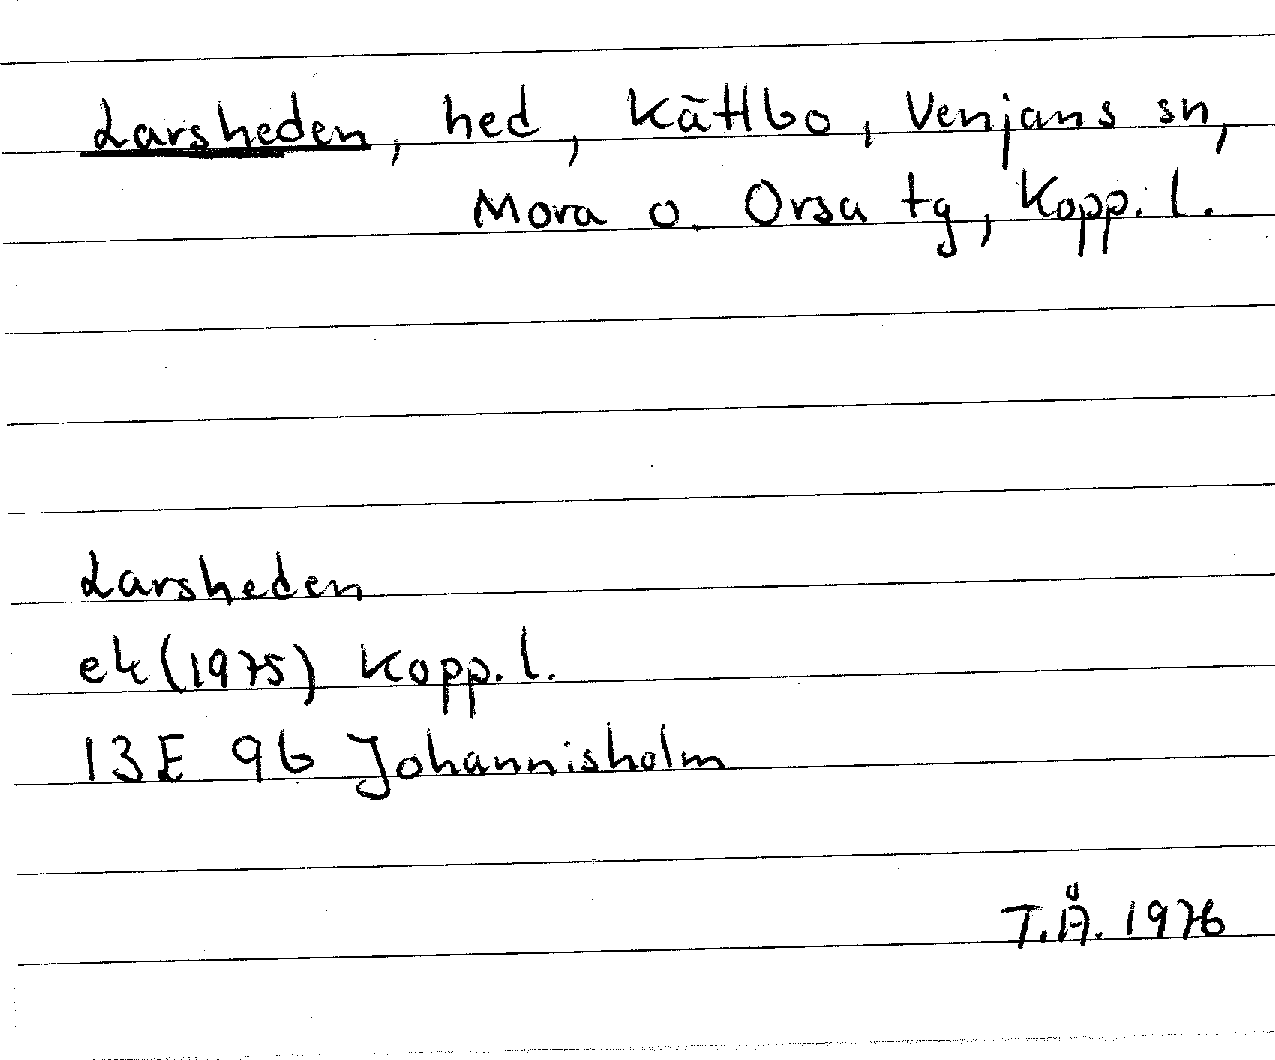 Larsheden, hed, Kättbo, Venjans sn,
Mora o. Orsa tg, Kopp. l.
Larsheden
ek (1975) Kopp. l.
13E 9b Johannisholm
T.Å. 1976